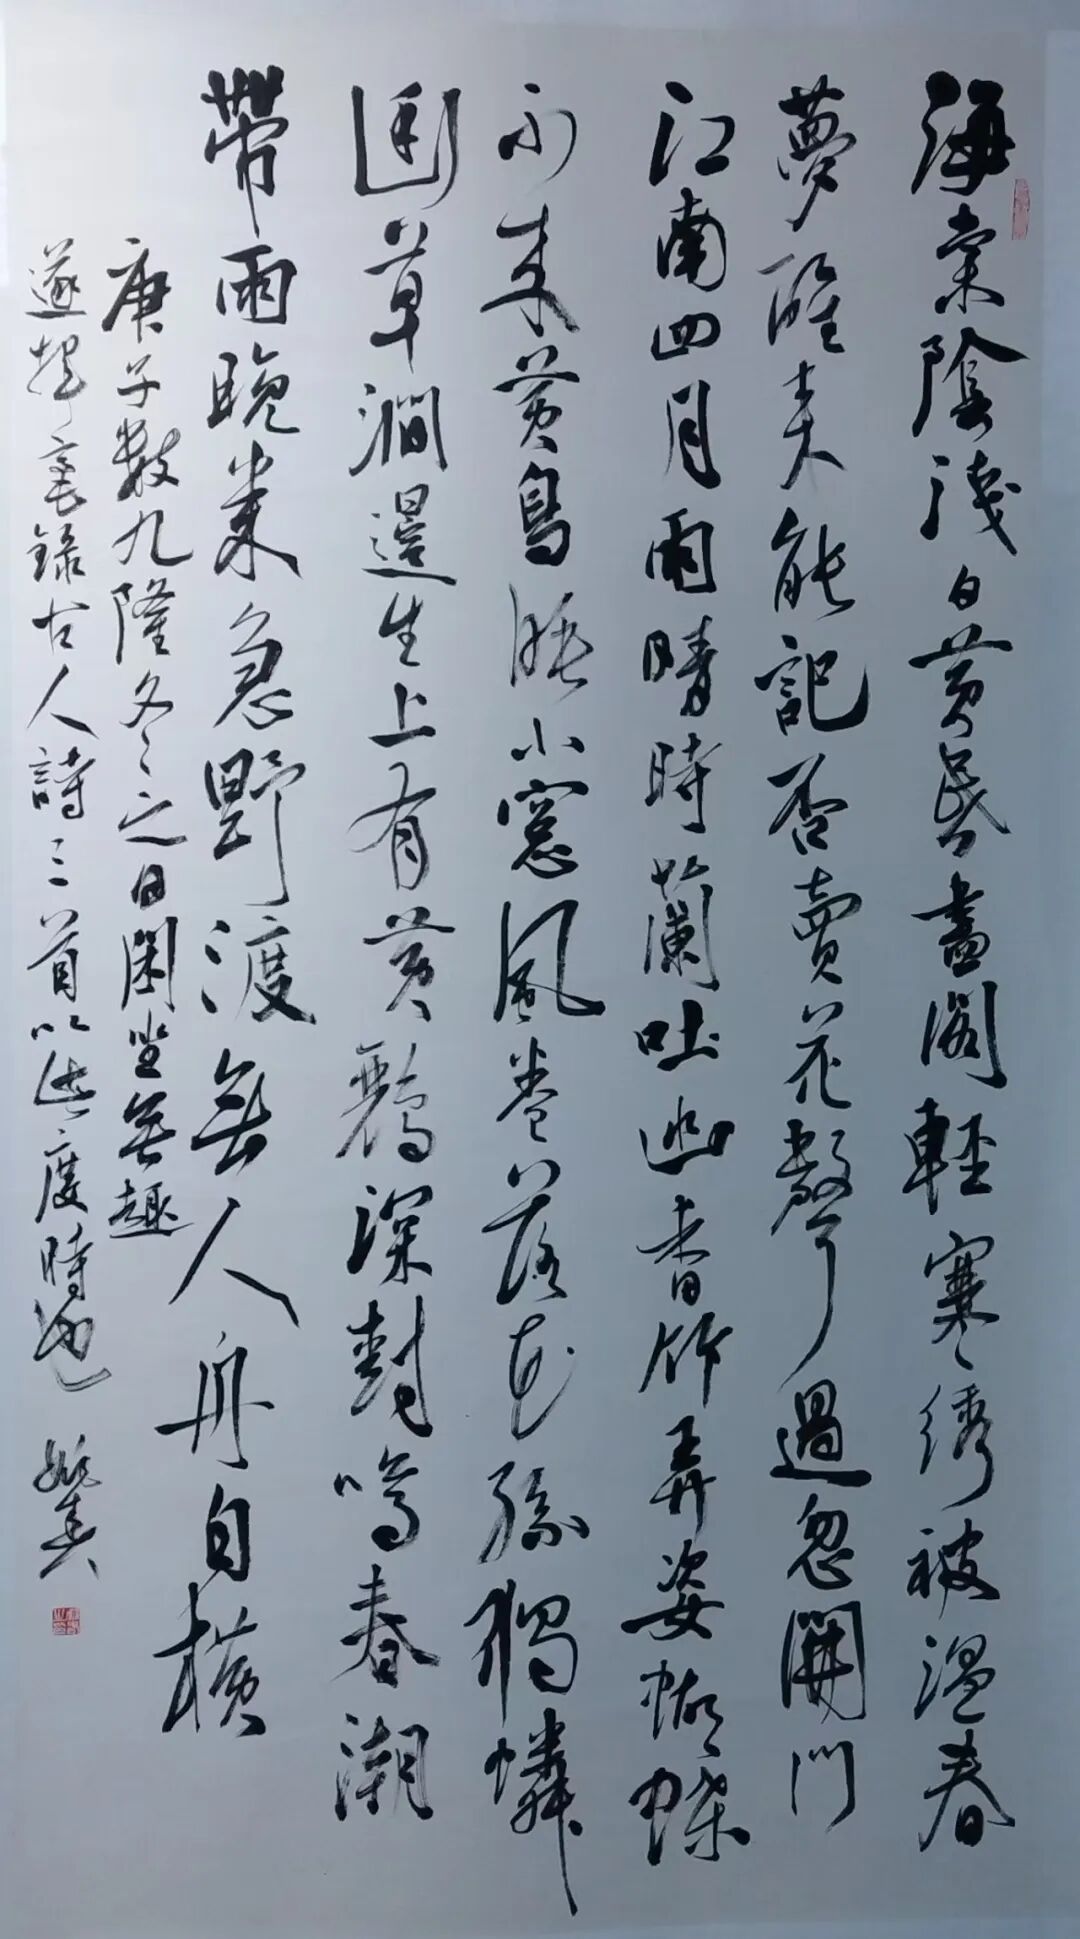 海棠陰淺日黃昏畫閣輕寒綉被溫春
夢醒來能記否賣花聲過忽開門
江南四月雨晴時蘭吐幽香竹弄姿蝴蝶
不來黃鳥睡小窓風卷落花絲獨憐
幽草澗邊生上有黃鸝深樹鳴春潮
帶雨晚來急野渡無人舟自橫
庚子數九隆冬之日閑坐無趣
遂揮毫錄古人詩三首以此度時也